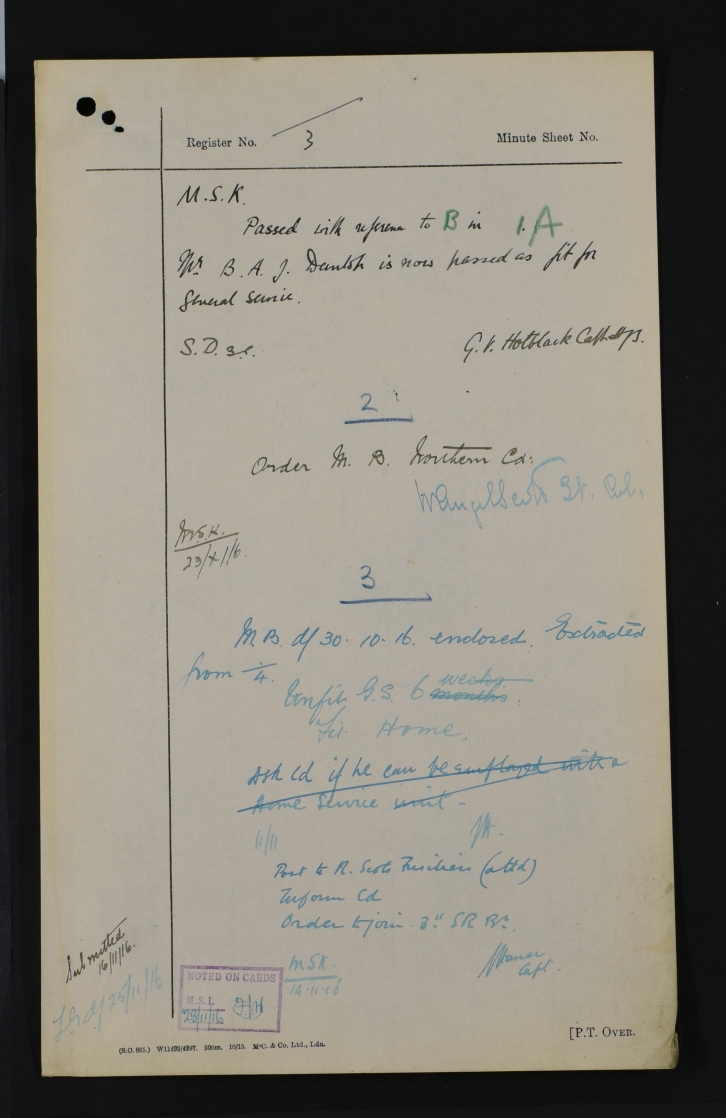 Register No. 3 Minute Sheet No.
M.S.K.
Passed with reference to B in 1.A
Mr B. A. J. Dunlop is now passed as fit for
General Service.
S.D. 3.c. G. V. Hotblack Capt
2
Order M. B. Northern Cd.
M.S.K.
23/X/16.
3
M.B. df 30-10-16. enclosed. Extracted
from 1/4.
Unfit G.S. 6 weeks months.
Fit Home.
Ask Cd if he can be employed with a
Home Service unit -
11/11
Post to R. Scots Fusiliers (attd)
Inform Cd
Order to join 3rd SR Bn.
MSK.
14-11-16 Capt.
Submitted
16/11/16.
df 25/11/16
NOTED ON CARDS
M.S.I.
28/11/16
[P.T. OVER.
(S.O. 865.) W11492/4297. 500m. 10/15. McC. & Co. Ltd., Ldn.